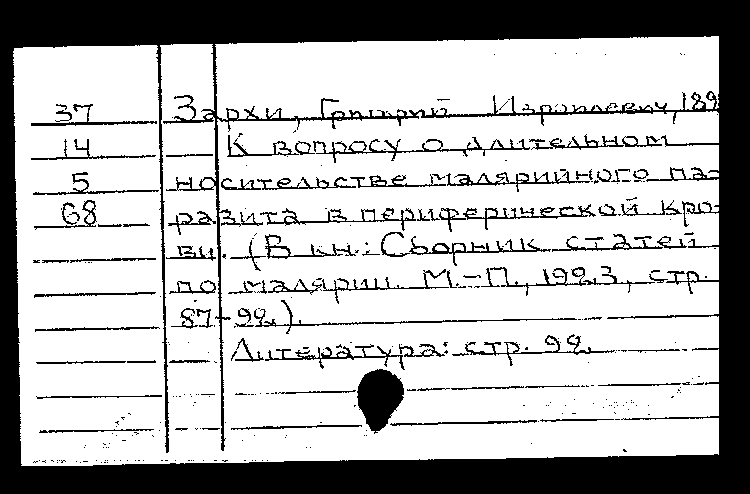 37 Зархи, Григорий Израилевич, 189
14 К вопросу о длительном
5 носительстве малярийного па-
68 разита в периферической кро-
ви. (В кн.: Сборник статей
по малярии. М.-П., 1923, стр.
87-92.).
Литература: стр. 92.